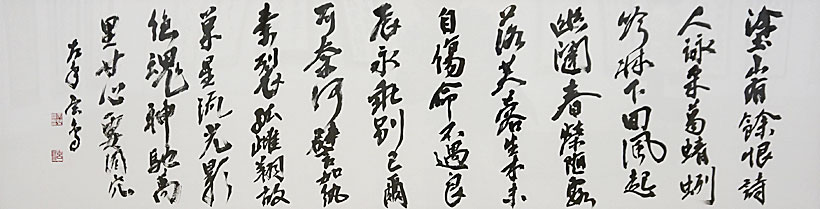 塗山有餘恨詩
人詠采葛蜻蛚
吟牀下回風起
幽闥春榮隨露
落芙蓉生木末
自傷命不遇良
辰永乖別已爾
可奈何譬如紈
素裂孤雌翔故
巢星流光影
絕魂神馳萬
里甘心要同穴